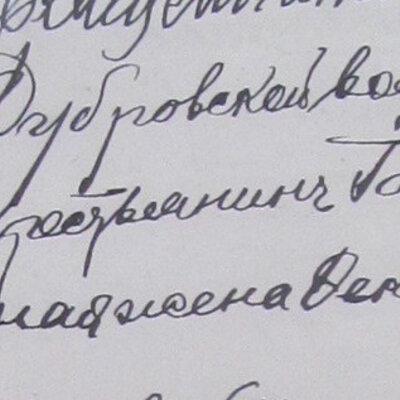 Дубровской во
рестьянинъ
ная жена Фек